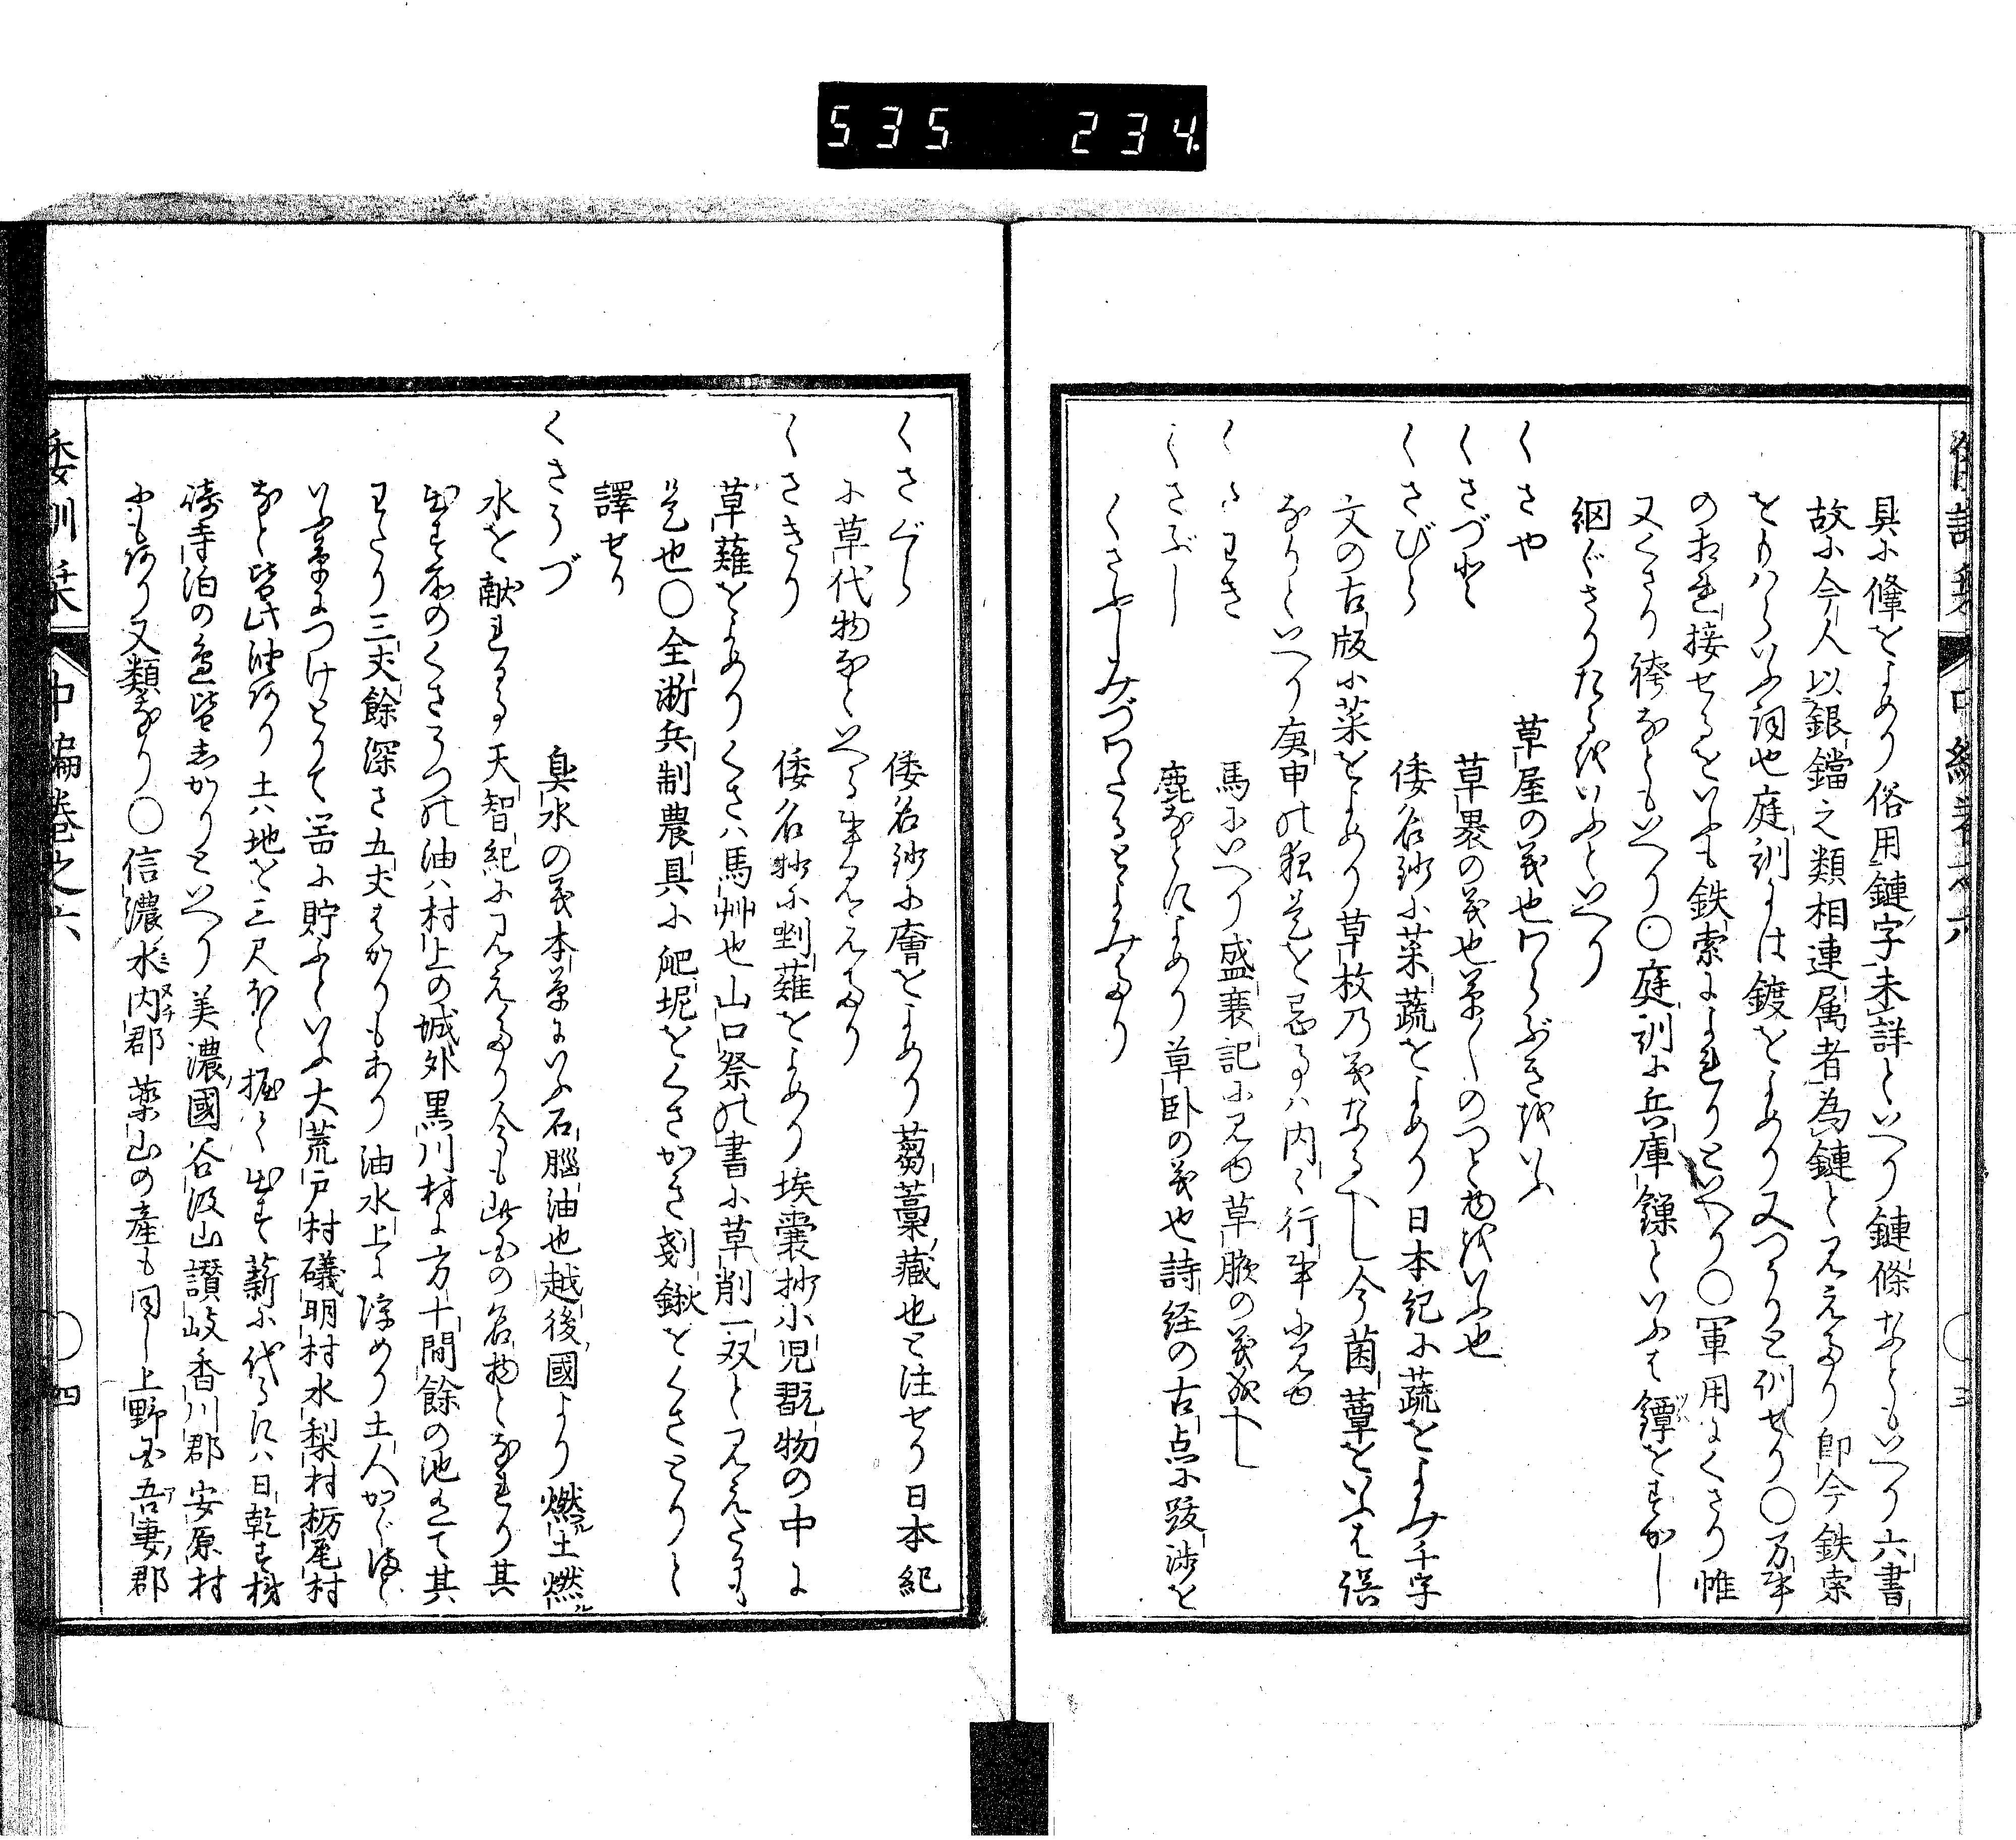 535 234
具に鞗をよめり俗用鏈字未詳といへり鏈條なともいへり六書
故に今人以銀鐺之類相連属者為鏈と見えたり即今鉄索
をもはらいふ詞也庭訓には鍍をよめり又つりと訓せり○万事
のあひ接せるをいふも鉄索によれりといへり○軍用にくさり帷
又くさり袴なともいへり○庭訓に兵庫鏁といふは鐔をすかし
綱ぐさりたるをいふといへり
くさや 草屋の義也わらぶきをいふ
くさづと 草裹の義也草〱のつと物をいふ也
くさびら 倭名鈔に菜蔬をよめり日本紀に蔬をよみ千字
文の古版に菜をよめり草枚乃義なるへし今菌蕈をいふは誤
なりといへり庚申の猿是を忌るハ内〻行事に見ゆ
くさわき 馬にいへり盛衰記に見ゆ草腋の義成へし
くさぶし 鹿なとによめり草卧の義也詩経の古点に跋渉を
くさふしみづわたるとよみたり
くさぐら 倭名鈔に廥をよめり蒭藁蔵也と注せり日本紀
に草代物なといへる事見えたり
くさきり 倭名鈔に剉薙をよめり埃嚢抄小児翫物の中に
草薙をよめりくさハ馬艸也山口祭の書に草削一双と見えたるも
是也○全浙兵制農具に爬坭をくさかき剗鍬をくさとりと
譯せり
くさうづ 臭水の義本草にいふ石脳油也越後國より燃土燃
水を献れる事天智紀に見えたり今も此国の名物となれり其
出す所のくさうつの油ハ村上の城外黒川村に方十間餘の池有て其
わたり三丈餘深さ五丈はかりもあり油水上に浮めり土人かぐま
いふ草につけとりて器に貯ふといふ大荒戸村礒明村水梨村栃尾村
なと皆此油あり土ハ地を三尺ほと掘て出す薪に代るにハ日乾す
寺泊の邊皆しかりといへり美濃國谷汲山讃岐香川郡安原村
にも有り又類なり○信濃水内郡薬山の産も同し上野国吾妻郡
倭訓栞 中編巻之六 四
中編巻之六 三